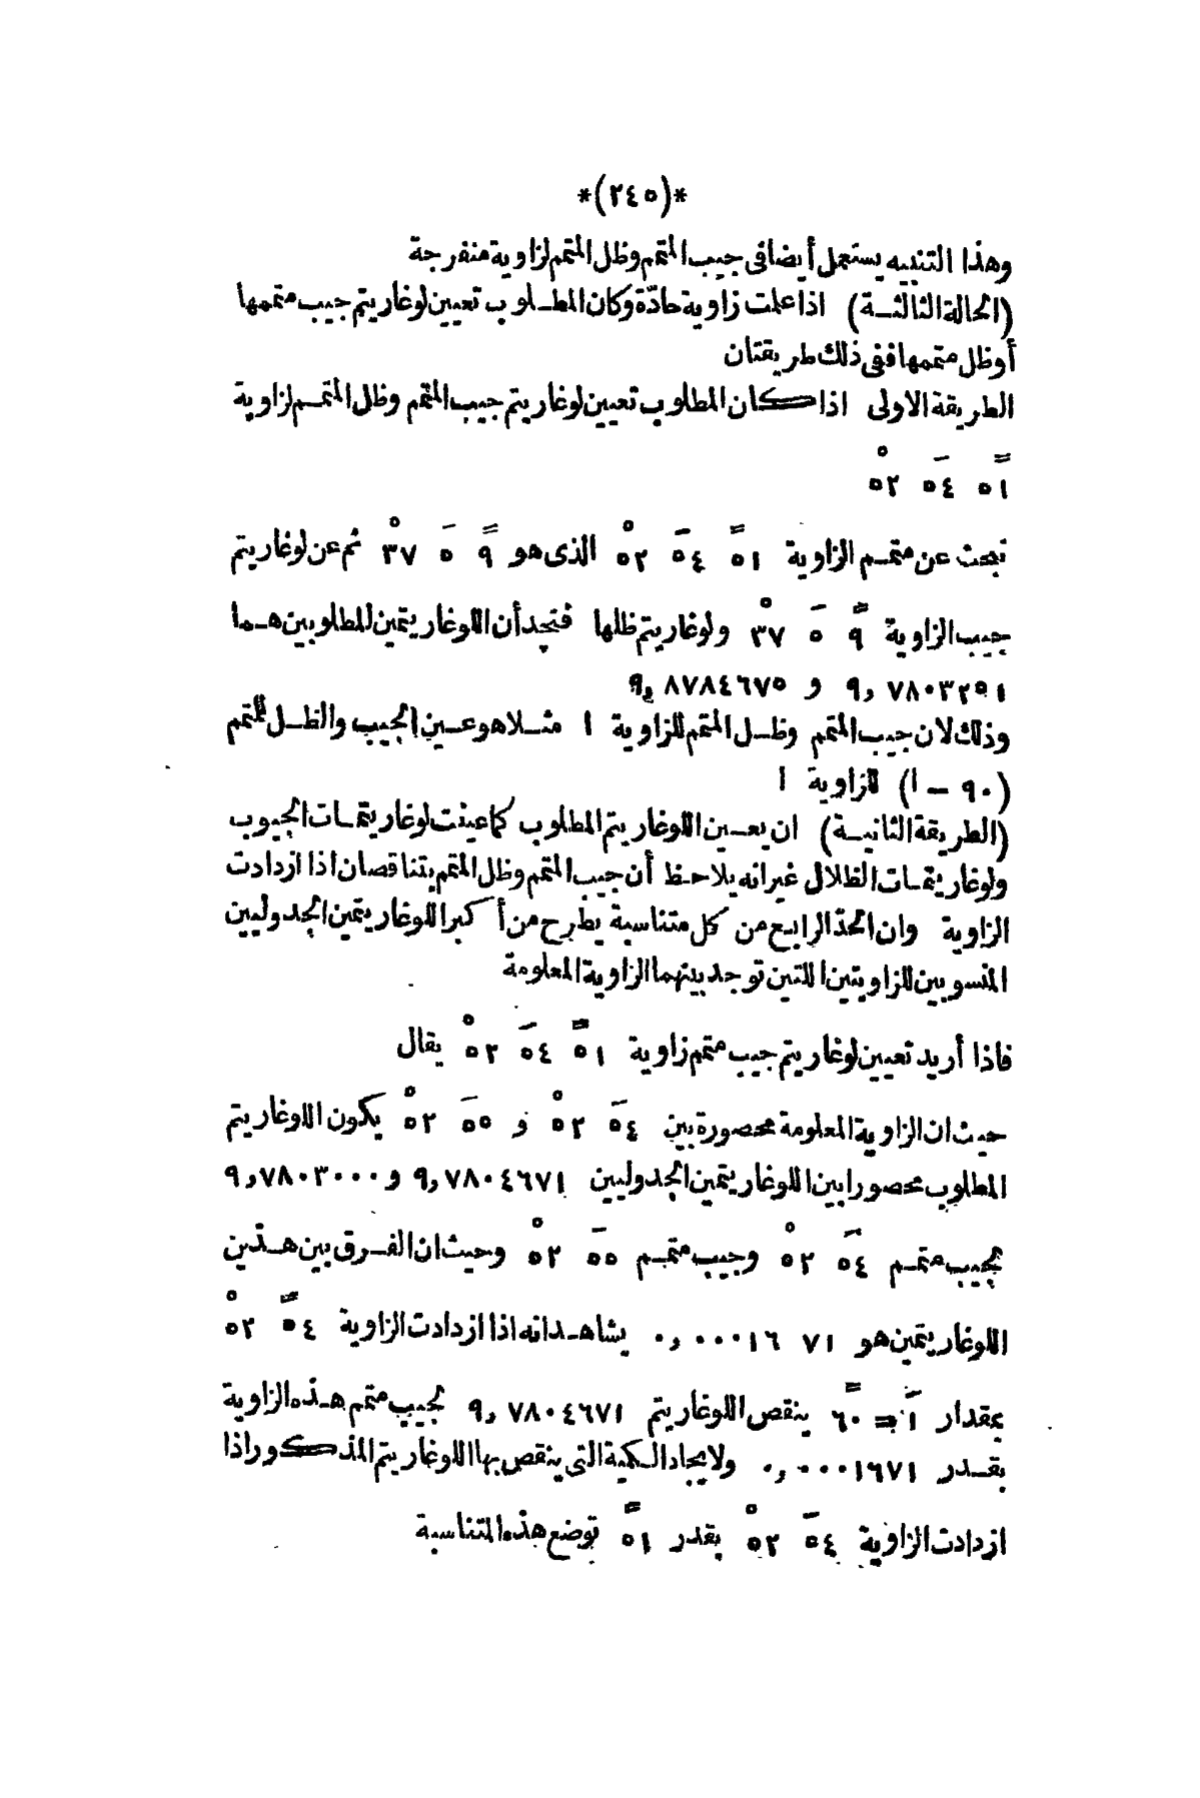 *(٢٤٥)*
وهذا التنبيه يستعمل أيضا فى جيب المتمم وظل المتمم لزاوية منفرجة
(الحالة الثالثـة) اذا علمت زاوية حادّة وكان المطـلوب تعيين لوغاريتم جيب متممها
أوظل متممها ففى ذلك طريقتان
الطريقة الاولى اذا كان المطلوب تعيين لوغاريتم جيب المتمم وظل المتمـم لزاوية
٥١ً ٥٤َ ٥٢ْ
نبحث عن متمـم الزاوية ٥١ً ٥٤َ ٥٢ْ الذى هو ٩ً ٥َ ٣٧ْ ثم عن لوغاريتم
جيب الزاوية ٩ً ٥َ ٣٧ْ ولوغاريتم ظلها فنجد أن اللوغاريتمين المطلوبين هـما
٩,٧٨٠٣٢٥١ و ٩,٨٧٨٤٦٧٥
وذلك لان جيب المتمم وظـل المتمم للزاوية ا مثـلا هو عـين الجيب والظـل للمتمم
(٩٠ - ا) للزاوية ا
(الطريقة الثانيـة) ان يعـين اللوغاريتم المطلوب كما عينت لوغاريتمـات الجيوب
ولوغاريتمـات الظلال غيرانه يلاحـظ أن جيب المتمم وظل المتمم يتناقصان اذا ازدادت
الزاوية وان الحدّ الرابع من كل متناسبة يطرح من أكبر اللوغاريتمين الجدوليين
المنسوبين للزاويتين اللتين توجد بينهما الزاوية المعلومة
فاذا أريد تعيين لوغاريتم جيب متمم زاوية ٥١ً ٥٤َ ٥٢ْ يقال
حيث ان الزاوية المعلومة محصورة بين ٥٤َ ٥٢ْ و ٥٥َ ٥٢ْ يكون اللوغاريتم
المطلوب محصورا بين اللوغاريتمين الجدوليين ٩,٧٨٠٤٦٧١ و ٩,٧٨٠٣٠٠٠
لجيب متمـم ٥٤َ ٥٢ْ وجيب متمـم ٥٥َ ٥٢ْ وحيث ان الفـرق بين هـذين
اللوغاريتمين هو ٠,٠٠٠١٦٧١ يشاهـد انه اذا ازدادت الزاوية ٥٤ً ٥٢ْ
بمقدار ١َ = ٦٠ً ينقص اللوغاريتم ٩,٧٨٠٤٦٧١ لجيب متمم هـذه الزاوية
بقـدر ٠,٠٠٠١٦٧١ ولايجاد الكمية التى ينقص بها اللوغاريتم المذكور اذا
ازدادت الزاوية ٥٤َ ٥٢ْ بقدر ٥١ً توضع هذه المتناسبة